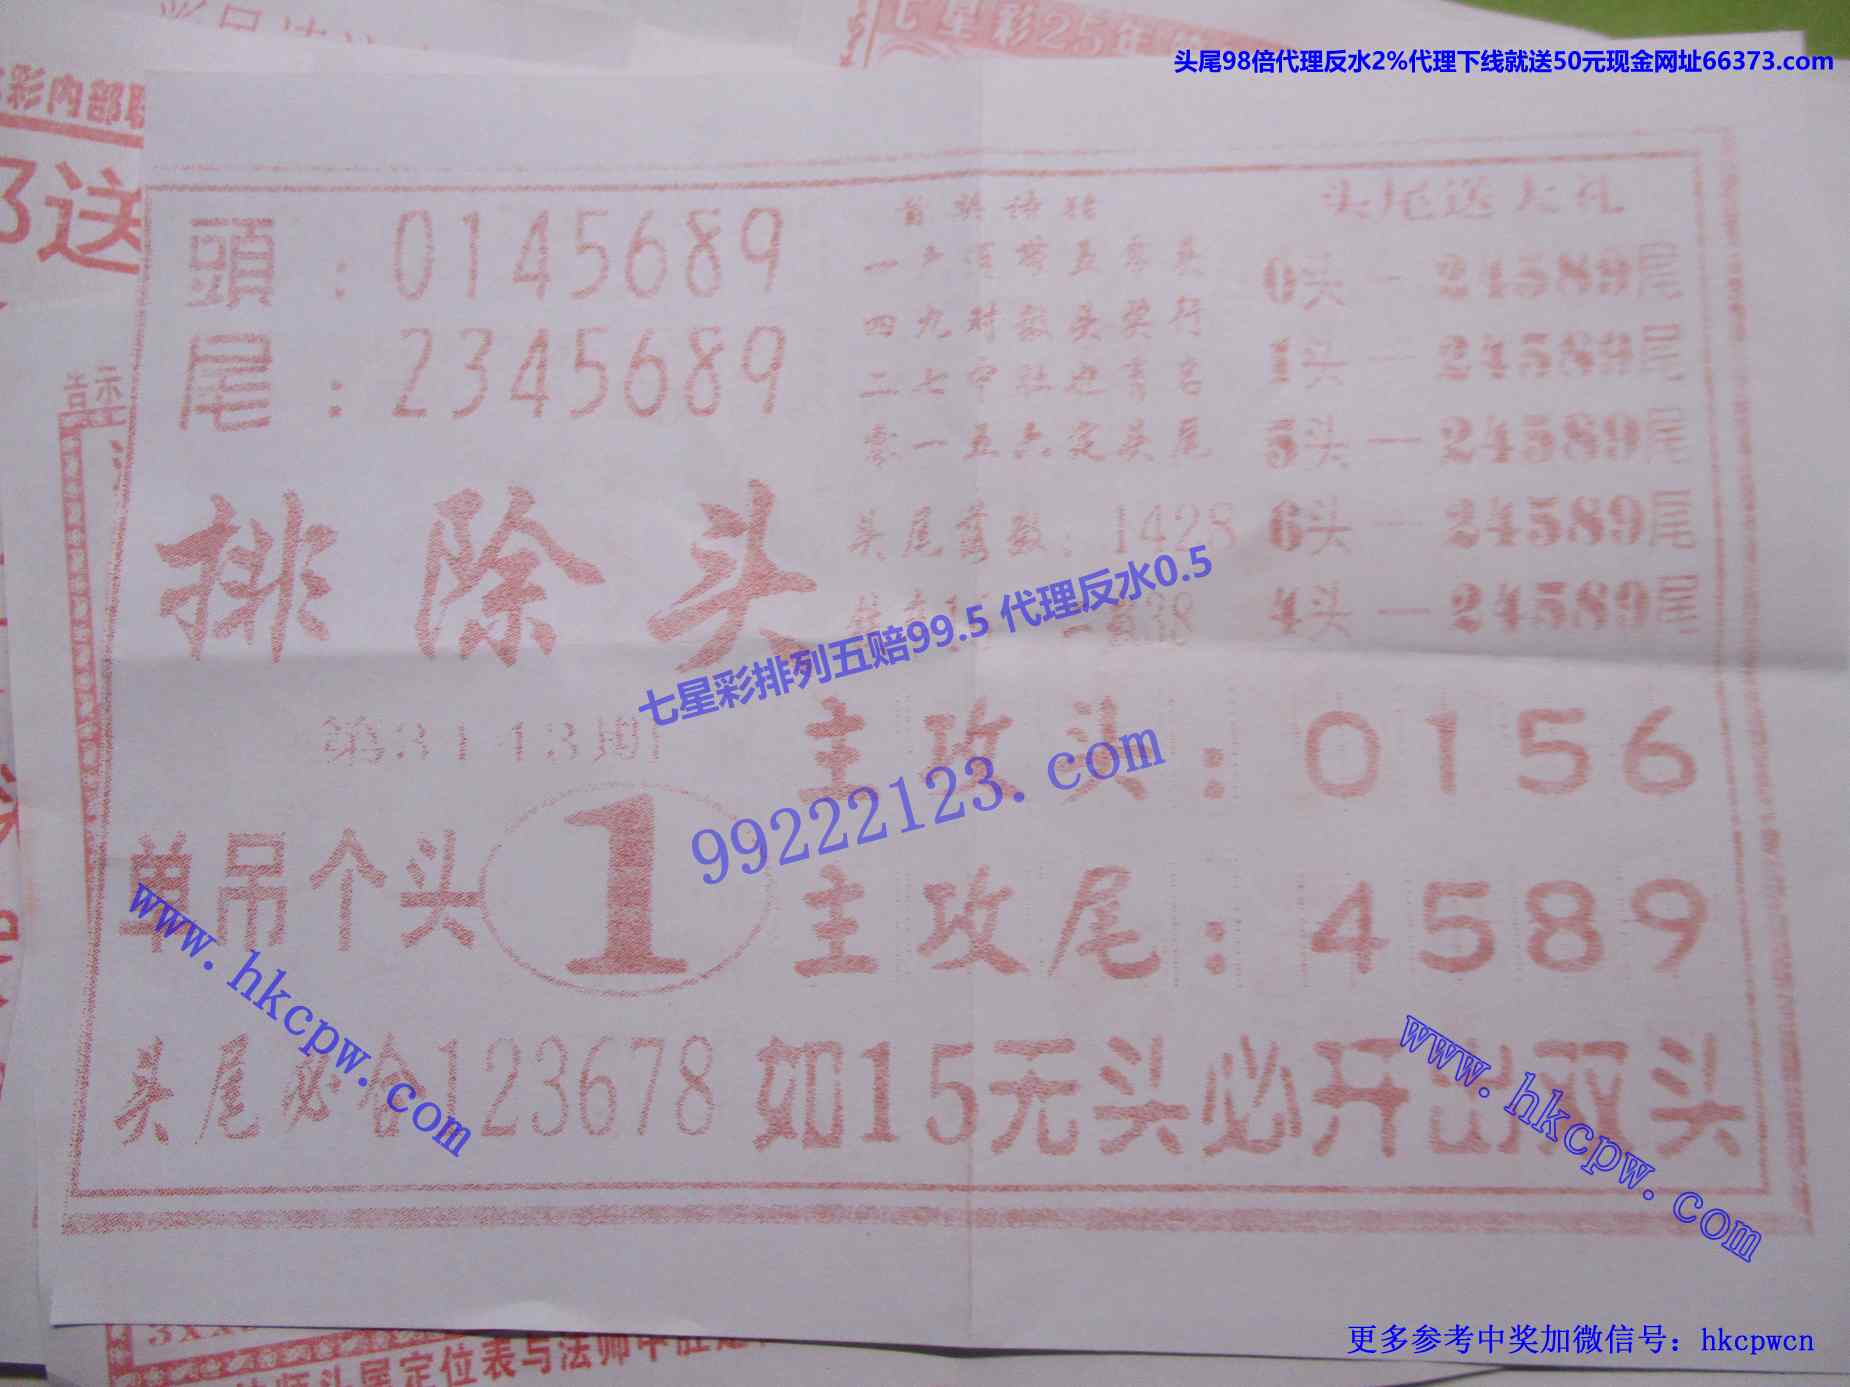 七星彩25年
头尾98倍代理反水2%代理下线就送50元现金网址66373.com
彩内部
送
頭：0145689
尾：2345689
头尾送大礼
0头一24589尾
1头一24589尾
5头一24589尾
6头一24589尾
4头一24589尾
四九对数头奖行
零一五六定头尾
头尾 数：1428
排除头
七星彩排列五赔99.5 代理反水0.5
99222123.com
单吊个头 1
主攻头：0156
主攻尾：4589
www.hkcpw.com
头尾必合123678 如15无头必开出双头
www.hkcpw.com
头尾定位表与法师
更多参考中奖加微信号：hkcpwcn